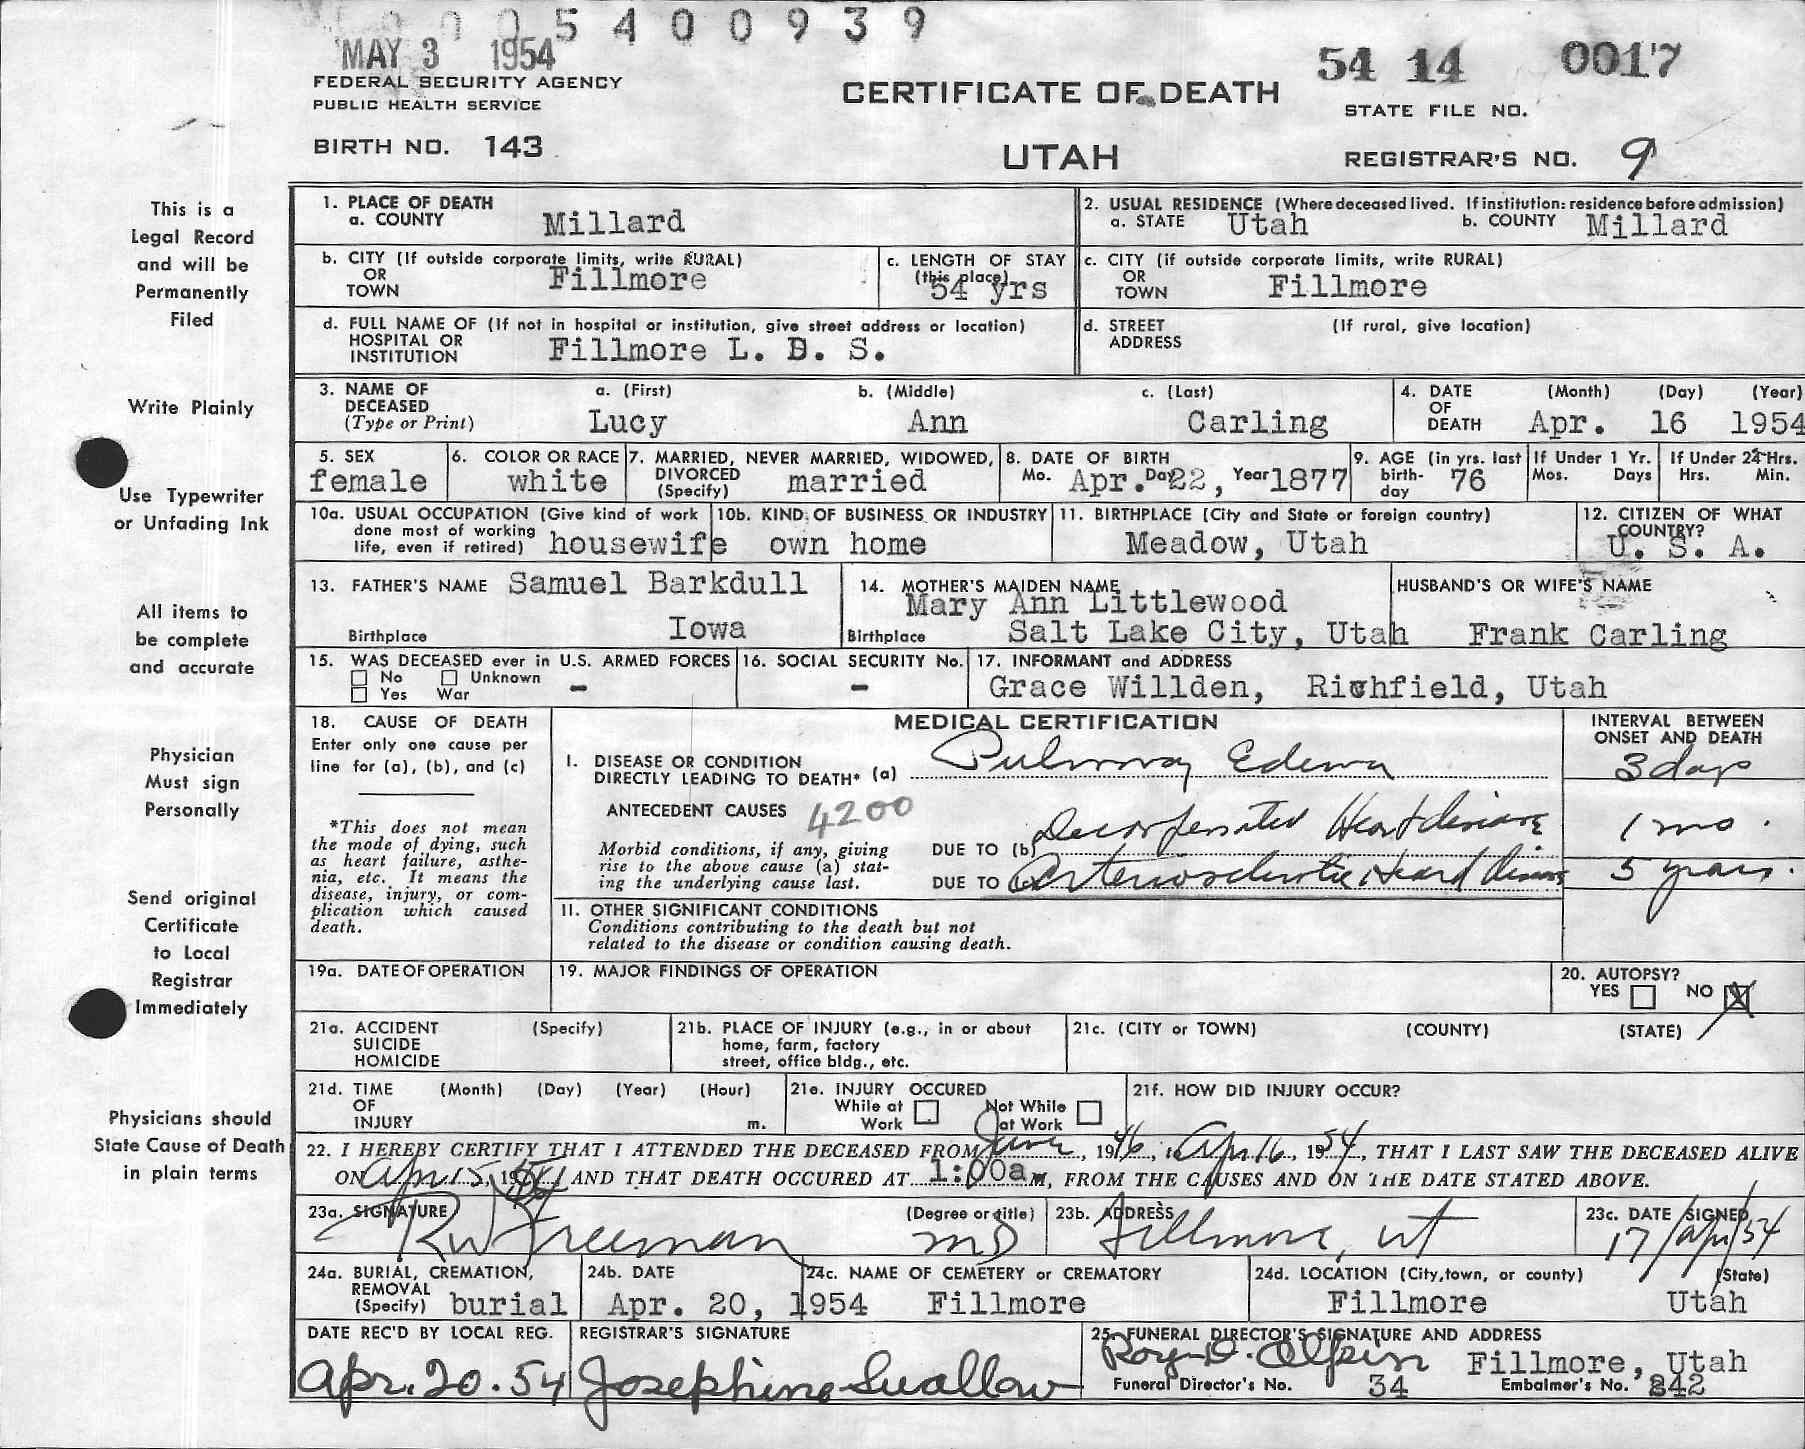 5400939
MAY 3 1954
54 14 0017
FEDERAL SECURITY AGENCY
PUBLIC HEALTH SERVICE
CERTIFICATE OF DEATH
STATE FILE NO.
BIRTH NO. 143
UTAH
REGISTRAR'S NO. 9
This is a
Legal Record
and will be
Permanently
Filed
Write Plainly
Use Typewriter
or Unfading Ink
All items to
be complete
and accurate
Physician
Must sign
Personally
Send original
Certificate
to Local
Registrar
Immediately
Physicians should
State Cause of Death
in plain terms
1. PLACE OF DEATH
a. COUNTY Millard
2. USUAL RESIDENCE (Where deceased lived. If institution: residence before admission)
a. STATE Utah b. COUNTY Millard
b. CITY (If outside corporate limits, write RURAL)
OR
TOWN Fillmore
c. LENGTH OF STAY
(this place)
54 yrs
c. CITY (if outside corporate limits, write RURAL)
OR
TOWN Fillmore
d. FULL NAME OF (If not in hospital or institution, give street address or location)
HOSPITAL OR
INSTITUTION Fillmore L. D. S.
d. STREET (If rural, give location)
ADDRESS
3. NAME OF a. (First) b. (Middle) c. (Last)
DECEASED
(Type or Print) Lucy Ann Carling
4. DATE (Month) (Day) (Year)
OF
DEATH Apr. 16 1954
5. SEX
female
6. COLOR OR RACE
white
7. MARRIED, NEVER MARRIED, WIDOWED,
DIVORCED
(Specify) married
8. DATE OF BIRTH
Mo. Apr. Day 22, Year 1877
9. AGE (in yrs. last
birth-
day 76
If Under 1 Yr.
Mos. Days
If Under 24 Hrs.
Hrs. Min.
10a. USUAL OCCUPATION (Give kind of work
done most of working
life, even if retired) housewife
10b. KIND OF BUSINESS OR INDUSTRY
own home
11. BIRTHPLACE (City and State or foreign country)
Meadow, Utah
12. CITIZEN OF WHAT
COUNTRY?
U. S. A.
13. FATHER'S NAME Samuel Barkdull
Birthplace Iowa
14. MOTHER'S MAIDEN NAME
Mary Ann Littlewood
Birthplace Salt Lake City, Utah
HUSBAND'S OR WIFE'S NAME
Frank Carling
15. WAS DECEASED ever in U.S. ARMED FORCES
No Unknown
Yes War -
16. SOCIAL SECURITY No.
-
17. INFORMANT and ADDRESS
Grace Willden, Richfield, Utah
18. CAUSE OF DEATH
Enter only one cause per
line for (a), (b), and (c)
*This does not mean
the mode of dying, such
as heart failure, asthe-
nia, etc. It means the
disease, injury, or com-
plication which caused
death.
MEDICAL CERTIFICATION
INTERVAL BETWEEN
ONSET AND DEATH
I. DISEASE OR CONDITION
DIRECTLY LEADING TO DEATH* (a) Pulmonary Edema 3 days
ANTECEDENT CAUSES 4200
Morbid conditions, if any, giving
rise to the above cause (a) stat-
ing the underlying cause last.
DUE TO (b) Decompensated Heart disease 1 mo.
DUE TO (c) Arteriosclerotic Heart disease 5 years.
II. OTHER SIGNIFICANT CONDITIONS
Conditions contributing to the death but not
related to the disease or condition causing death.
19a. DATE OF OPERATION
19. MAJOR FINDINGS OF OPERATION
20. AUTOPSY?
YES NO X
21a. ACCIDENT (Specify)
SUICIDE
HOMICIDE
21b. PLACE OF INJURY (e.g., in or about
home, farm, factory
street, office bldg., etc.
21c. (CITY or TOWN) (COUNTY) (STATE)
21d. TIME (Month) (Day) (Year) (Hour)
OF
INJURY m.
21e. INJURY OCCURED
While at Not While
Work at Work
21f. HOW DID INJURY OCCUR?
22. I HEREBY CERTIFY THAT I ATTENDED THE DECEASED FROM June, 1946, to Apr 16, 1954, THAT I LAST SAW THE DECEASED ALIVE
ON Apr 15, 1954 AND THAT DEATH OCCURED AT 1:00a m, FROM THE CAUSES AND ON THE DATE STATED ABOVE.
23a. SIGNATURE (Degree or title)
RW Freeman MD
23b. ADDRESS
Fillmore, Ut
23c. DATE SIGNED
17/Apr/54
24a. BURIAL, CREMATION,
REMOVAL
(Specify) burial
24b. DATE
Apr. 20, 1954
24c. NAME OF CEMETERY or CREMATORY
Fillmore
24d. LOCATION (City, town, or county) (State)
Fillmore Utah
DATE REC'D BY LOCAL REG.
Apr. 20. 54
REGISTRAR'S SIGNATURE
Josephine Swallow
25. FUNERAL DIRECTOR'S SIGNATURE AND ADDRESS
Roy D. Olpin Fillmore, Utah
Funeral Director's No. 34 Embalmer's No. 242